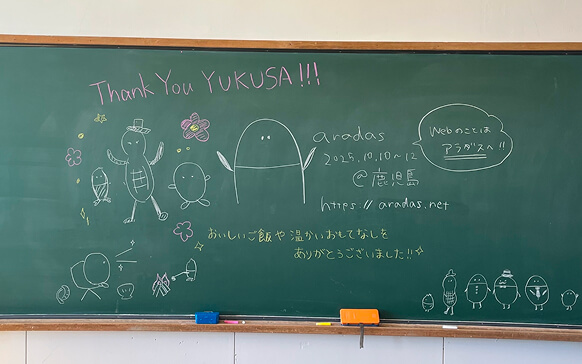 Thank You YUKUSA!!!
aradas
2025.10.10~12
@鹿児島
https://aradas.net
Webのことは
アラダスへ!!
おいしいご飯や温かいおもてなしを
ありがとうございました!!